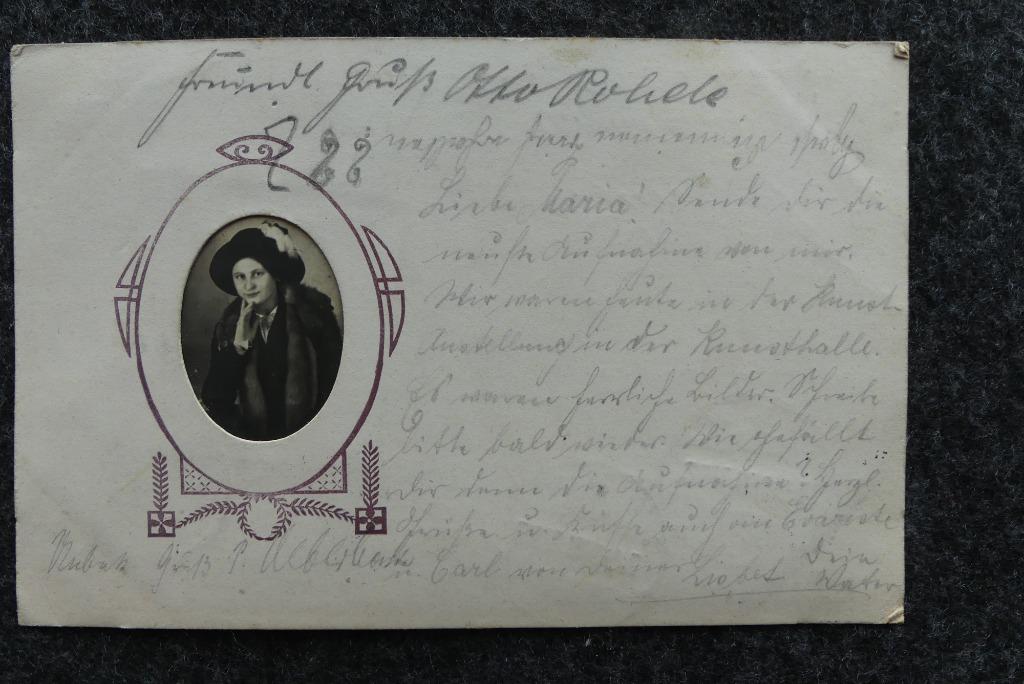 Freundl. Gruß Otto Rohde
Liebe Maria! Sende dir die
neuste Aufnahme von mir.
Wir waren heute in der Kunst-
Austellung in der Kunsthalle.
Es waren herrliche Bilder. Schreibe
bitte bald wieder. Wie gefällt
dir denn die Aufnahme? Herzl.
Grüße u. Küsse auch an
u. Carl von deiner Lisbet Dein
Gruß